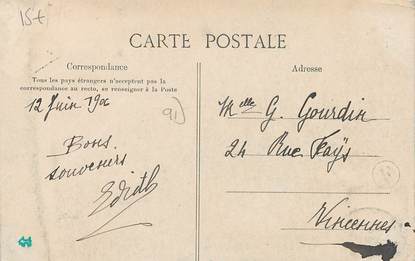 15+
CARTE POSTALE
Correspondance
Tous les pays étrangers n'acceptent pas la
correspondance au recto, se renseigner à la Poste
12 Juin 1906
91
Bons
souvenirs
Edith
Adresse
Melle G. Gourdin
24 Rue Faÿs
Vincennes